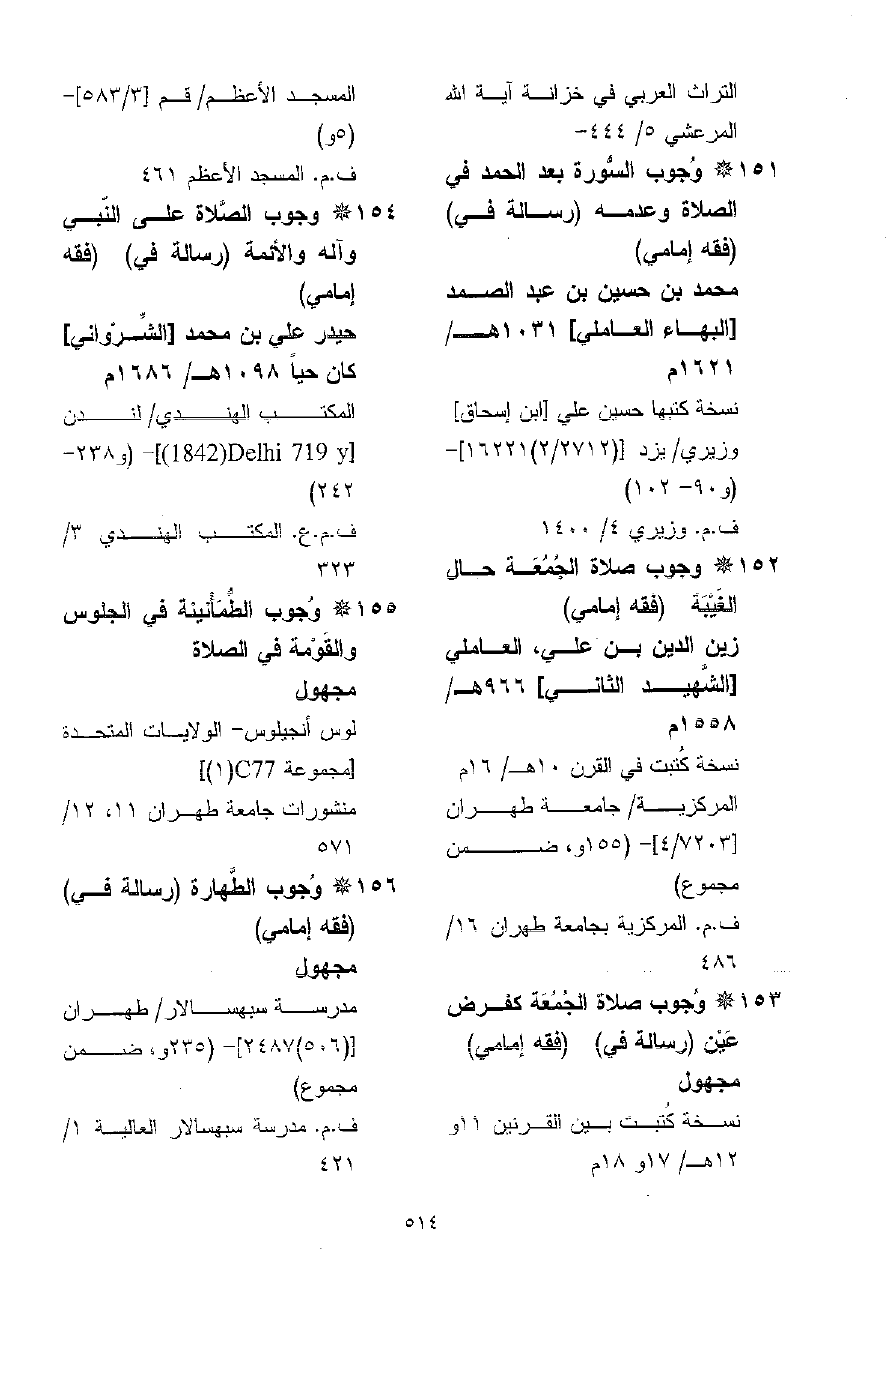 التراث العربي في خزانة آية الله
المرعشي ٥/ ٤٤٤-
١٥١ * وُجوب السُّورة بعد الحمد في
الصلاة وعدمه (رسالة في)
(فقه إمامي)
محمد بن حسين بن عبد الصمد
[البهاء العاملي] ١٠٣١هـ/
١٦٢١م
نسخة كتبها حسين علي [ابن إسحاق]
وزيري/ يزد [(٢/٢٧١٢)١٦٢٢١]-
(و٩٠- ١٠٢)
ف.م. وزيري ٤/ ١٤٠٠
١٥٢ * وجوب صلاة الجُمُعَة حال
الغَيْبَة (فقه إمامي)
زين الدين بن علي، العاملي
[الشَّهيد الثاني] ٩٦٦هـ/
١٥٥٨م
نسخة كُتبت في القرن ١٠هـ/ ١٦م
المركزية/ جامعة طهران
[٤/٧٢٠٣]- (١٥٥و، ضمن
مجموع)
ف.م. المركزية بجامعة طهران ١٦/
٤٨٦
١٥٣ * وُجوب صلاة الجُمُعَة كفرض
عَيْن (رسالة في) (فقه إمامي)
مجهول
نسخة كُتبت بين القرنين ١١و
١٢هـ/ ١٧و ١٨م
المسجد الأعظم/ قم [٥٨٣/٣]-
(٥و)
ف.م. المسجد الأعظم ٤٦١
١٥٤ * وجوب الصَّلاة على النَّبي
وآله والأئمة (رسالة في) (فقه
إمامي)
حيدر علي بن محمد [الشِّرْواني]
كان حياً ١٠٩٨هـ/ ١٦٨٦م
المكتب الهندي/ لندن
[Delhi 719 y(1842)]- (و٢٣٨-
٢٤٢)
ف.م.ع. المكتب الهندي ٣/
٣٢٣
١٥٥ * وُجوب الطُّمَأْنينة في الجلوس
والقَوْمة في الصلاة
مجهول
لوس أنجيلوس- الولايات المتحدة
[مجموعة C77(١)]
منشورات جامعة طهران ١١، ١٢/
٥٧١
١٥٦ * وُجوب الطَّهارة (رسالة في)
(فقه إمامي)
مجهول
مدرسة سبهسالار/ طهران
[(٥٠٦)٢٤٨٧]- (٢٣٥و، ضمن
مجموع)
ف.م. مدرسة سبهسالار العالية ١/
٤٢١
٥١٤